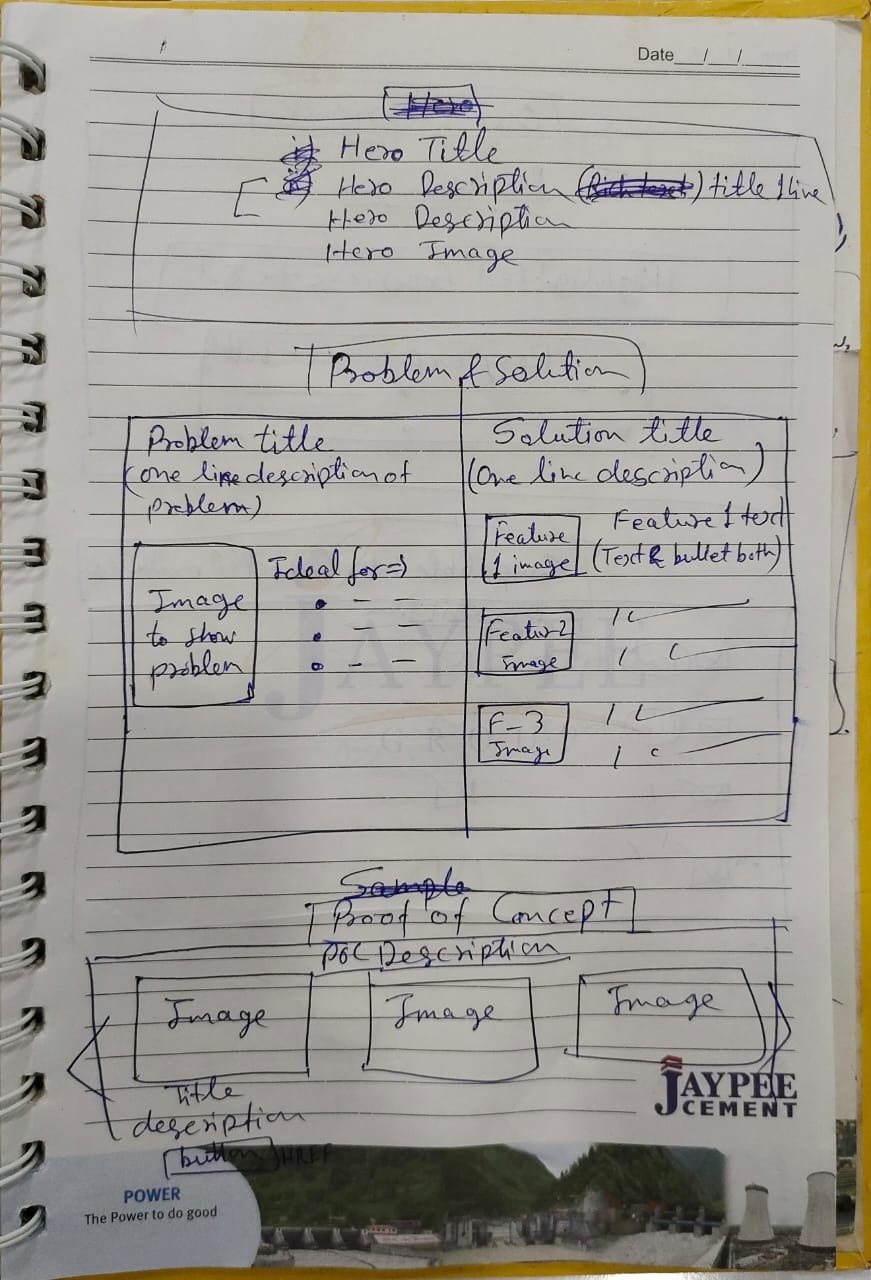 Date__/__/____
Hero
Hero Title
Hero Description (Rich text) title 1 line
Hero Description
Hero Image
Problem & Solution
Problem title
(one line description of
problem)
Image
to show
problem
Ideal for =>
Solution title
(One line description)
Feature
1 image
Feature 1 text
(Text & bullet both)
Featur-2
Image
F-3
Image
Sample
Proof of Concept
POC Description
Image
Image
Image
Title
description
button HREF
JAYPEE
CEMENT
JAYPEE
GROUP
POWER
The Power to do good